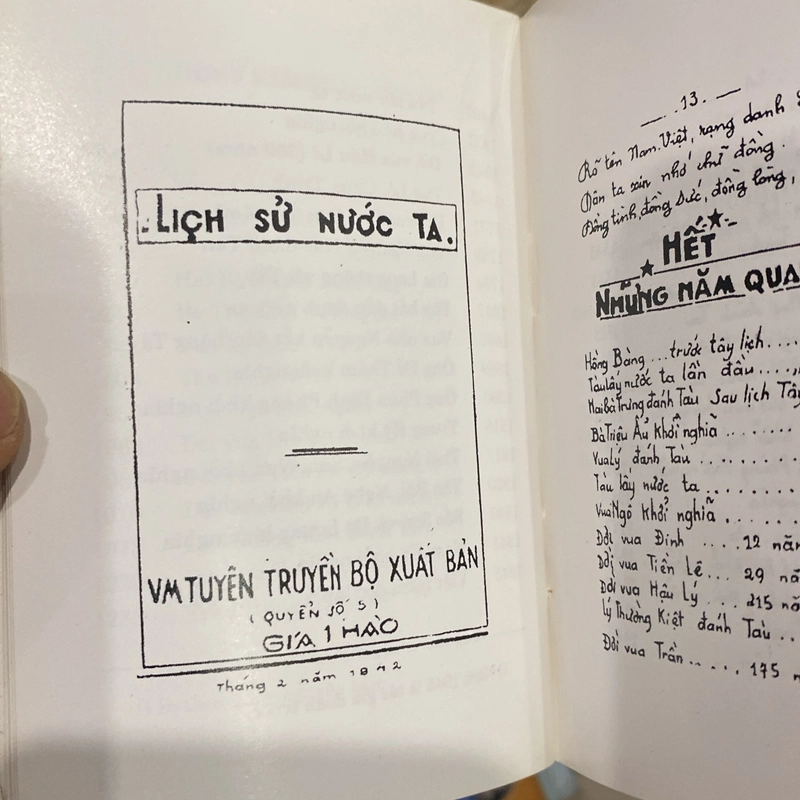 .LỊCH SỬ NƯỚC TA.
VM TUYÊN TRUYỀN BỘ XUẤT BẢN
(QUYỂN SỐ 5)
GIÁ 1 HÀO
Tháng 2 năm 1942
— 13. —
Rõ tên Nam.Việt, rạng danh
Dân ta xin nhớ chữ đồng.
Đồng tình, đồng sức, đồng lòng,
HẾT
NHỮNG NĂM QUA
Hồng Bàng ... trước tây lịch ....
Tàu lấy nước ta lần đầu ....
Hai bà Trưng đánh Tàu sau lịch Tây
Bà Triệu Ẩu khởi nghĩa ........
Vua Lý đánh Tàu ........
Tàu lấy nước ta ........
Vua Ngô khởi nghĩa ........
Đời vua Đinh .... 12 năm
Đời vua Tiền Lê ... 29 năm
Đời vua Hậu Lý .... 215 năm
Lý Thường Kiệt đánh Tàu ....
Đời vua Trần ...... 175